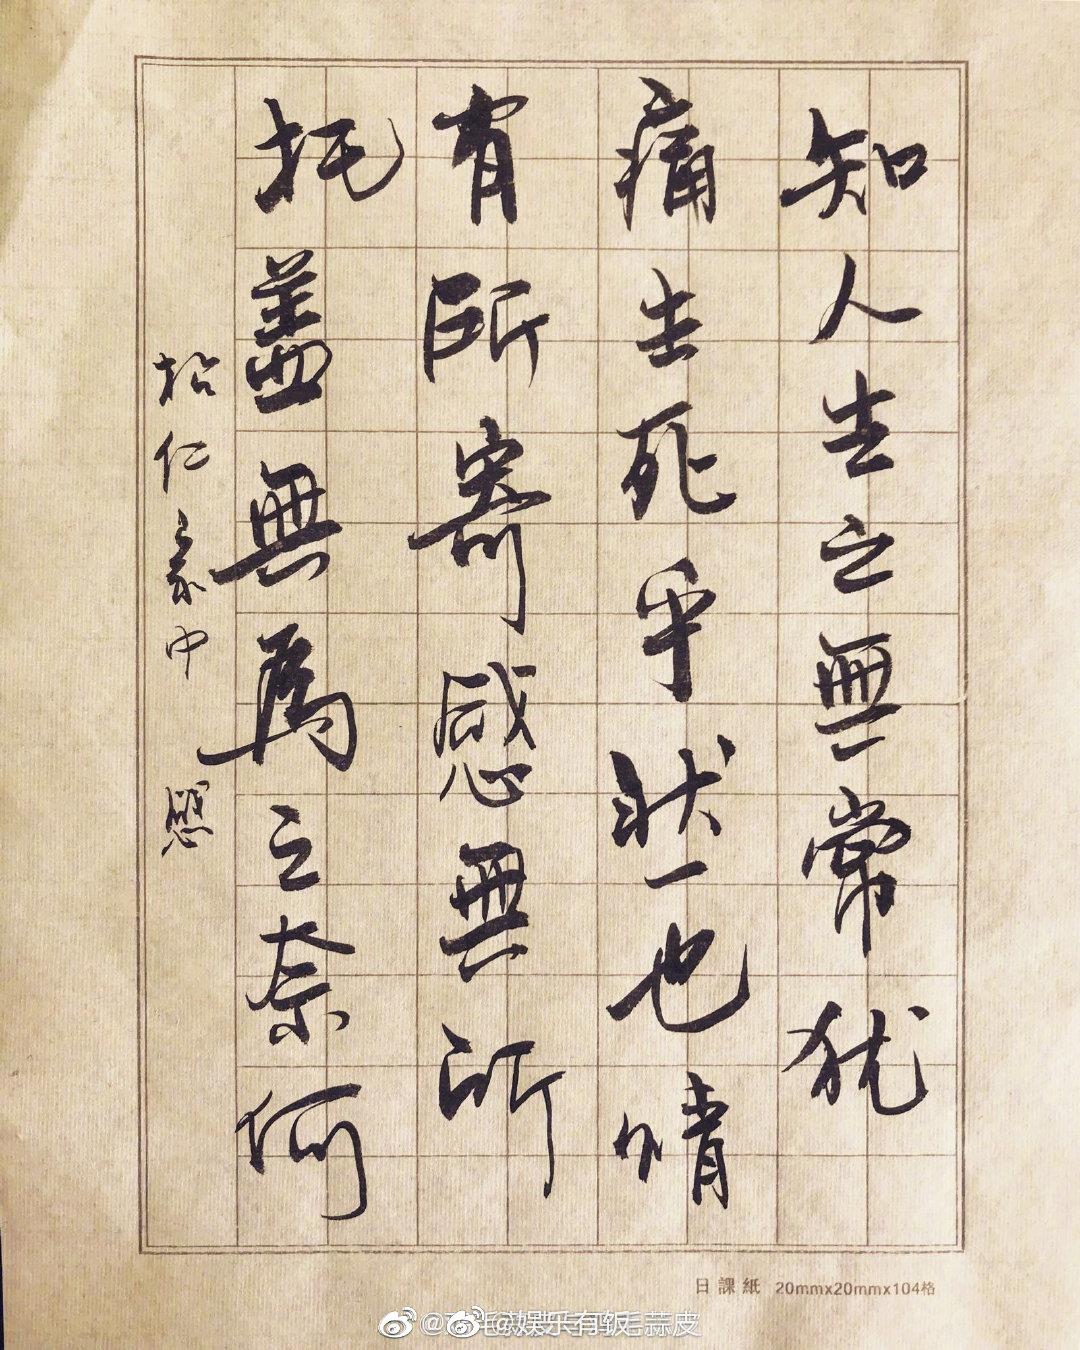 知人生之無常猶
痛生死乎狀一也情
有所寄感無所
托蓋無為之奈何
於仁家中
日課紙 20mmx20mmx104格
@娱乐有飯
毛蒜皮